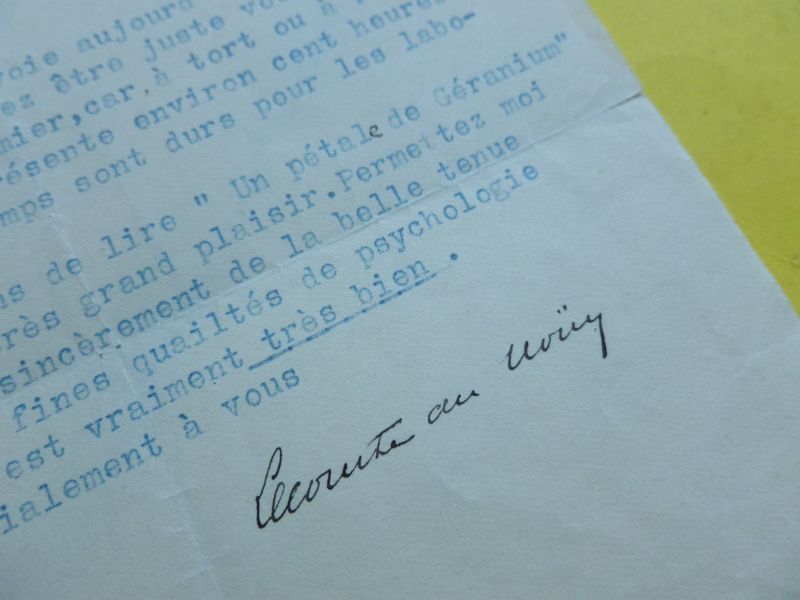 voie aujourd
ez être juste vo
mier,car,à tort ou à
résente environ cent heures
mps sont durs pour les labo-
ns de lire " Un pétale de Géranium"
rès grand plaisir.Permettez moi
sincèrement de la belle tenue
fines quailtés de psychologie
est vraiment très bien .
ialement à vous
Lecomte du Noüy